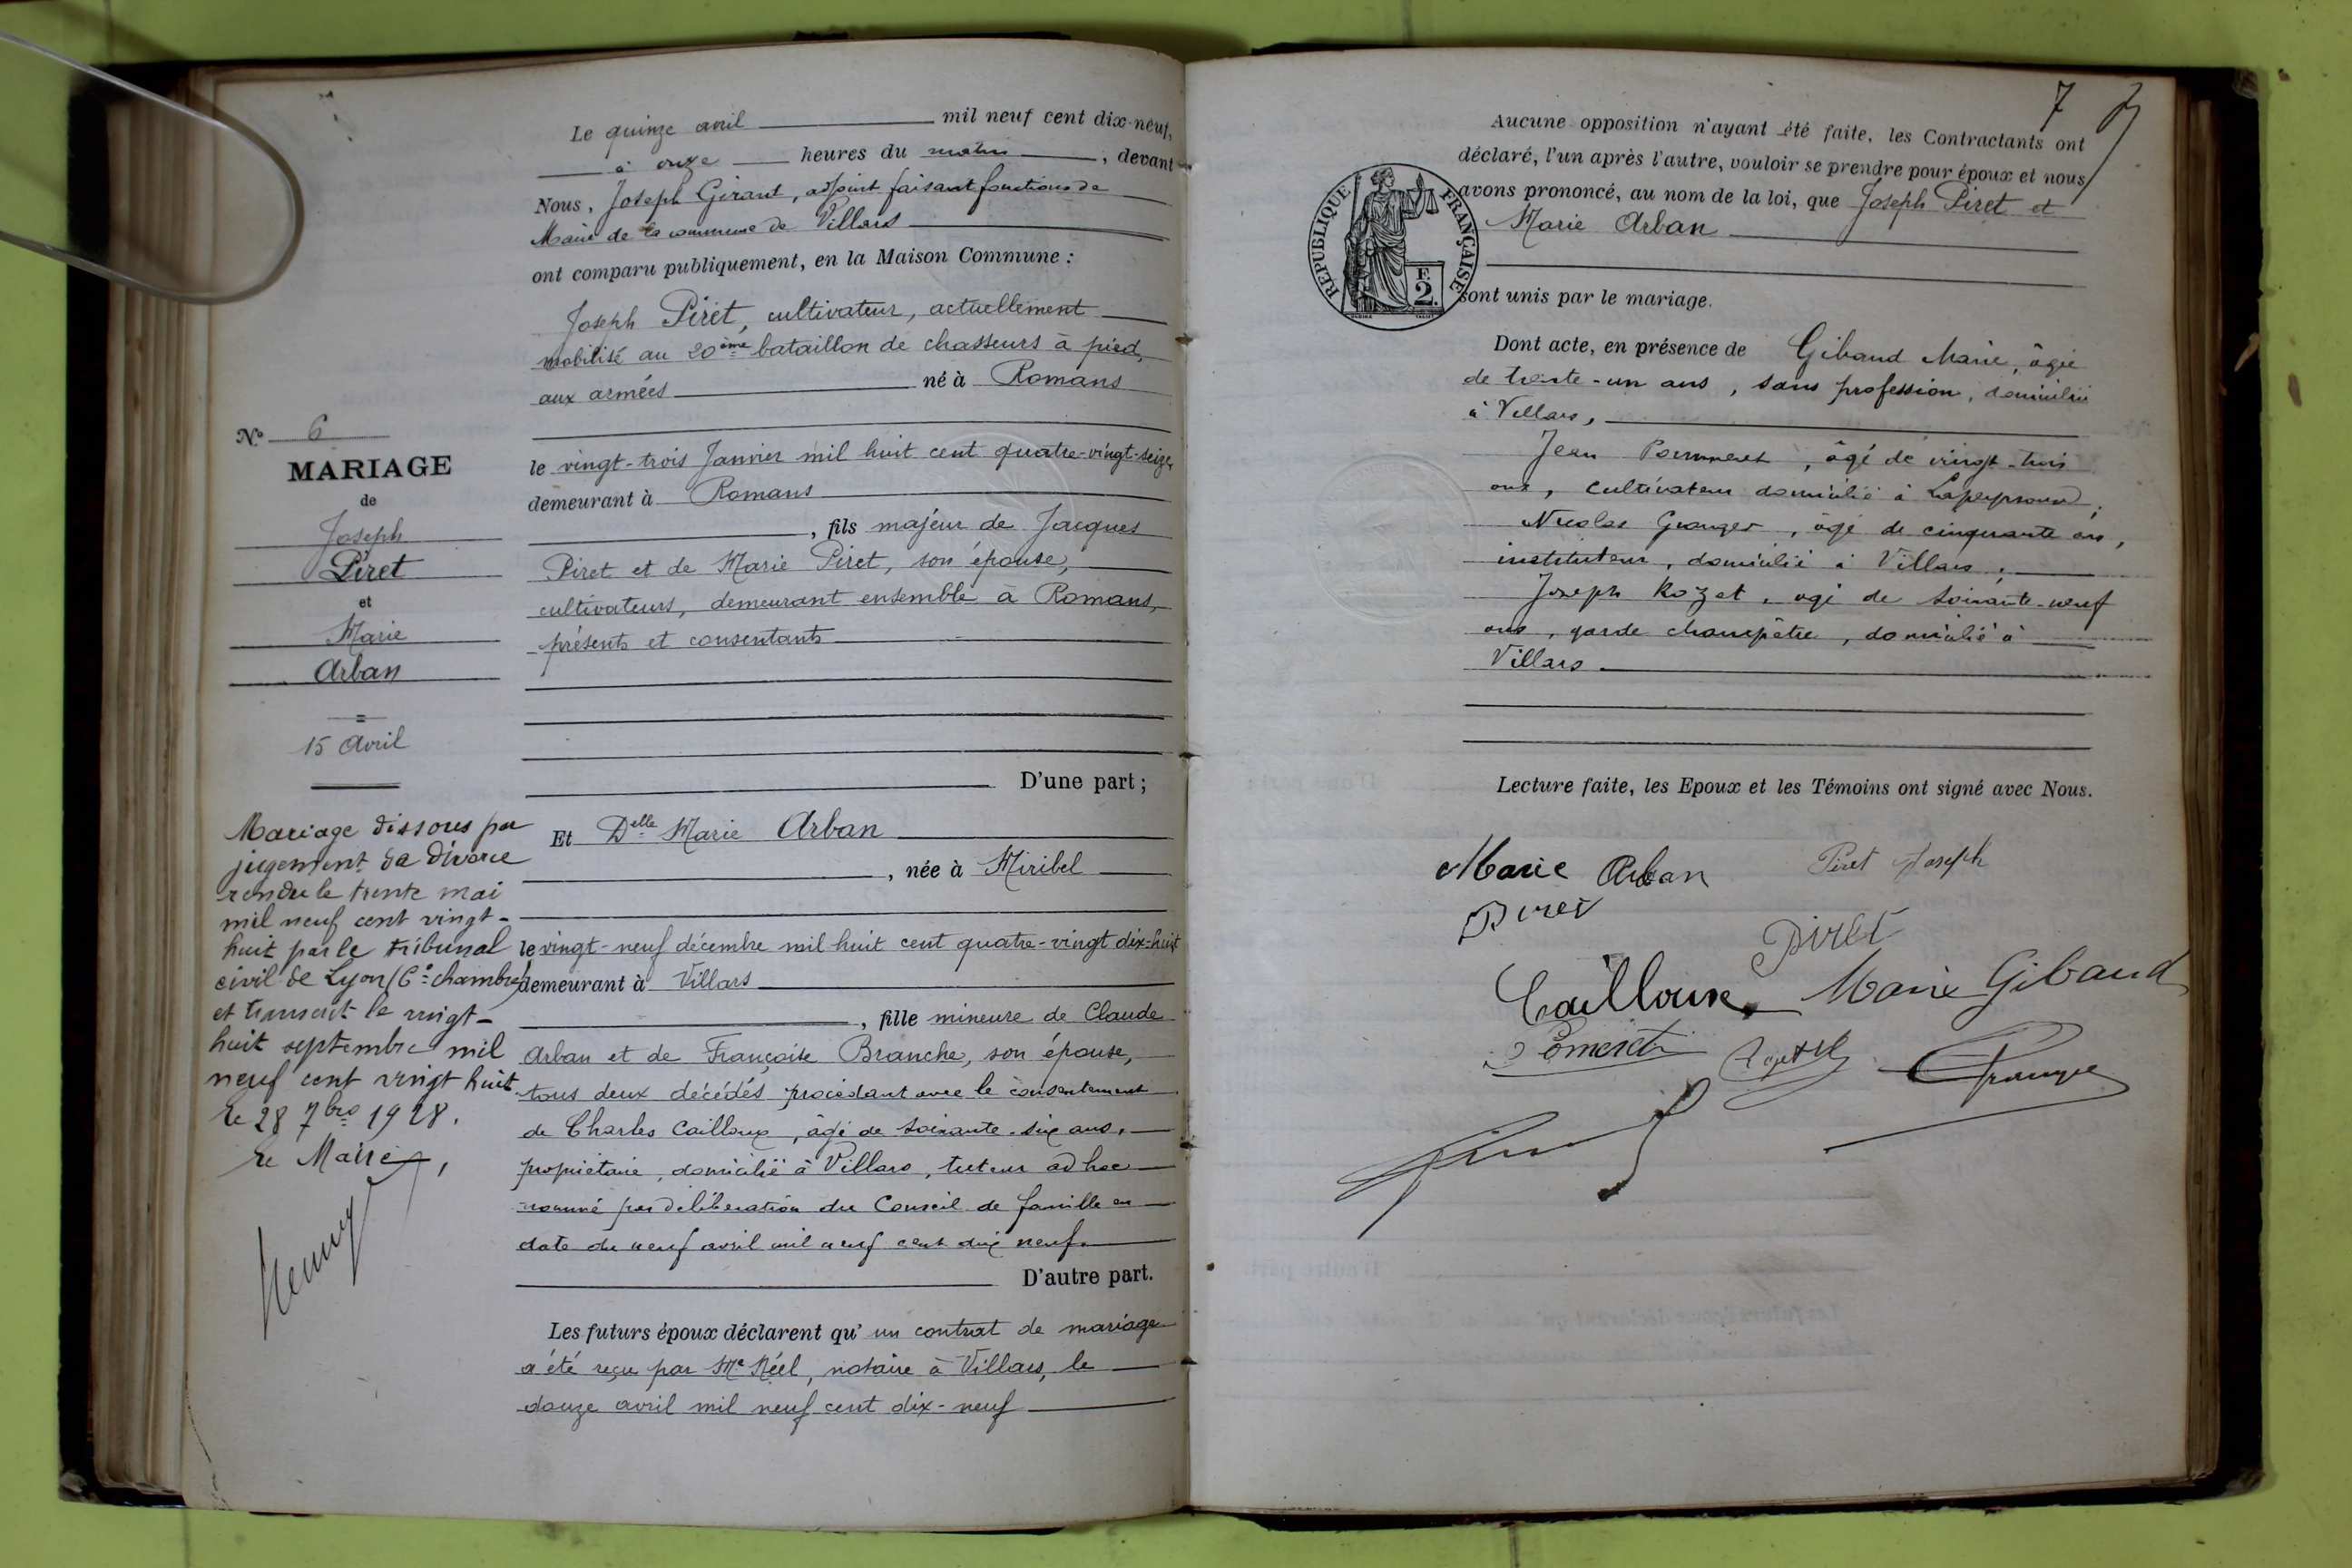 N° 6
MARIAGE
de
Joseph
Piret
et
Marie
Arban
15 Avril
Mariage dissous par
jugement de divorce
rendu le trente mai
mil neuf cent vingt-
huit par le tribunal
civil de Lyon (6e chambre)
et transcrit le vingt-
huit septembre mil
neuf cent vingt huit
Le 28 7bre 1928.
Le Maire,
Le quinze avril mil neuf cent dix-neuf,
à onze heures du matin, devant
Nous, Joseph Girant, adjoint faisant fonctions de
Maire de la commune de Villars
ont comparu publiquement, en la Maison Commune :
Joseph Piret, cultivateur, actuellement
mobilisé au 20ème bataillon de chasseurs à pied,
aux armées né à Romans
le vingt-trois Janvier mil huit cent quatre-vingt-seize,
demeurant à Romans
, fils majeur de Jacques
Piret et de Marie Piret, son épouse,
cultivateurs, demeurant ensemble à Romans,
présents et consentants
D'une part ;
Et Delle Marie Arban
, née à Miribel
le vingt-neuf décembre mil huit cent quatre-vingt dix-huit
demeurant à Villars
, fille mineure de Claude
Arban et de Françoise Branche, son épouse,
tous deux décédés procédant avec le consentement
de Charles Cailloux, âgé de soixante-six ans,
propriétaire, domicilié à Villars, tuteur ad hoc
nommé par délibération du Conseil de famille en
date du neuf avril mil neuf cent dix neuf.
D'autre part.
Les futurs époux déclarent qu' un contrat de mariage
a été reçu par Me Réel, notaire à Villars, le
douze avril mil neuf cent dix-neuf
7
Aucune opposition n'ayant été faite, les Contractants ont
déclaré, l'un après l'autre, vouloir se prendre pour époux et nous
avons prononcé, au nom de la loi, que Joseph Piret et
Marie Arban
RÉPUBLIQUE FRANÇAISE
F.
2.
sont unis par le mariage.
Dont acte, en présence de Gibaud Marie, âgée
de trente-un ans, sans profession, domiciliée
à Villars,
Jean Pommeret, âgé de vingt-trois
ans, cultivateur domicilié à Lapeyrouse,
Nicolas Granger, âgé de cinquante ans,
instituteur, domicilié à Villars,
Joseph Rozet, âgé de soixante-neuf
ans, garde champêtre, domicilié à
Villars.
Lecture faite, les Epoux et les Témoins ont signé avec Nous.
Marie Arban Piret Joseph
Piret
Piret
Cailloux Marie Gibaud